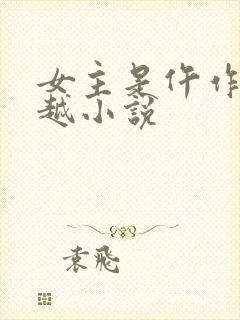 女主是仵作
越小说
袁飛